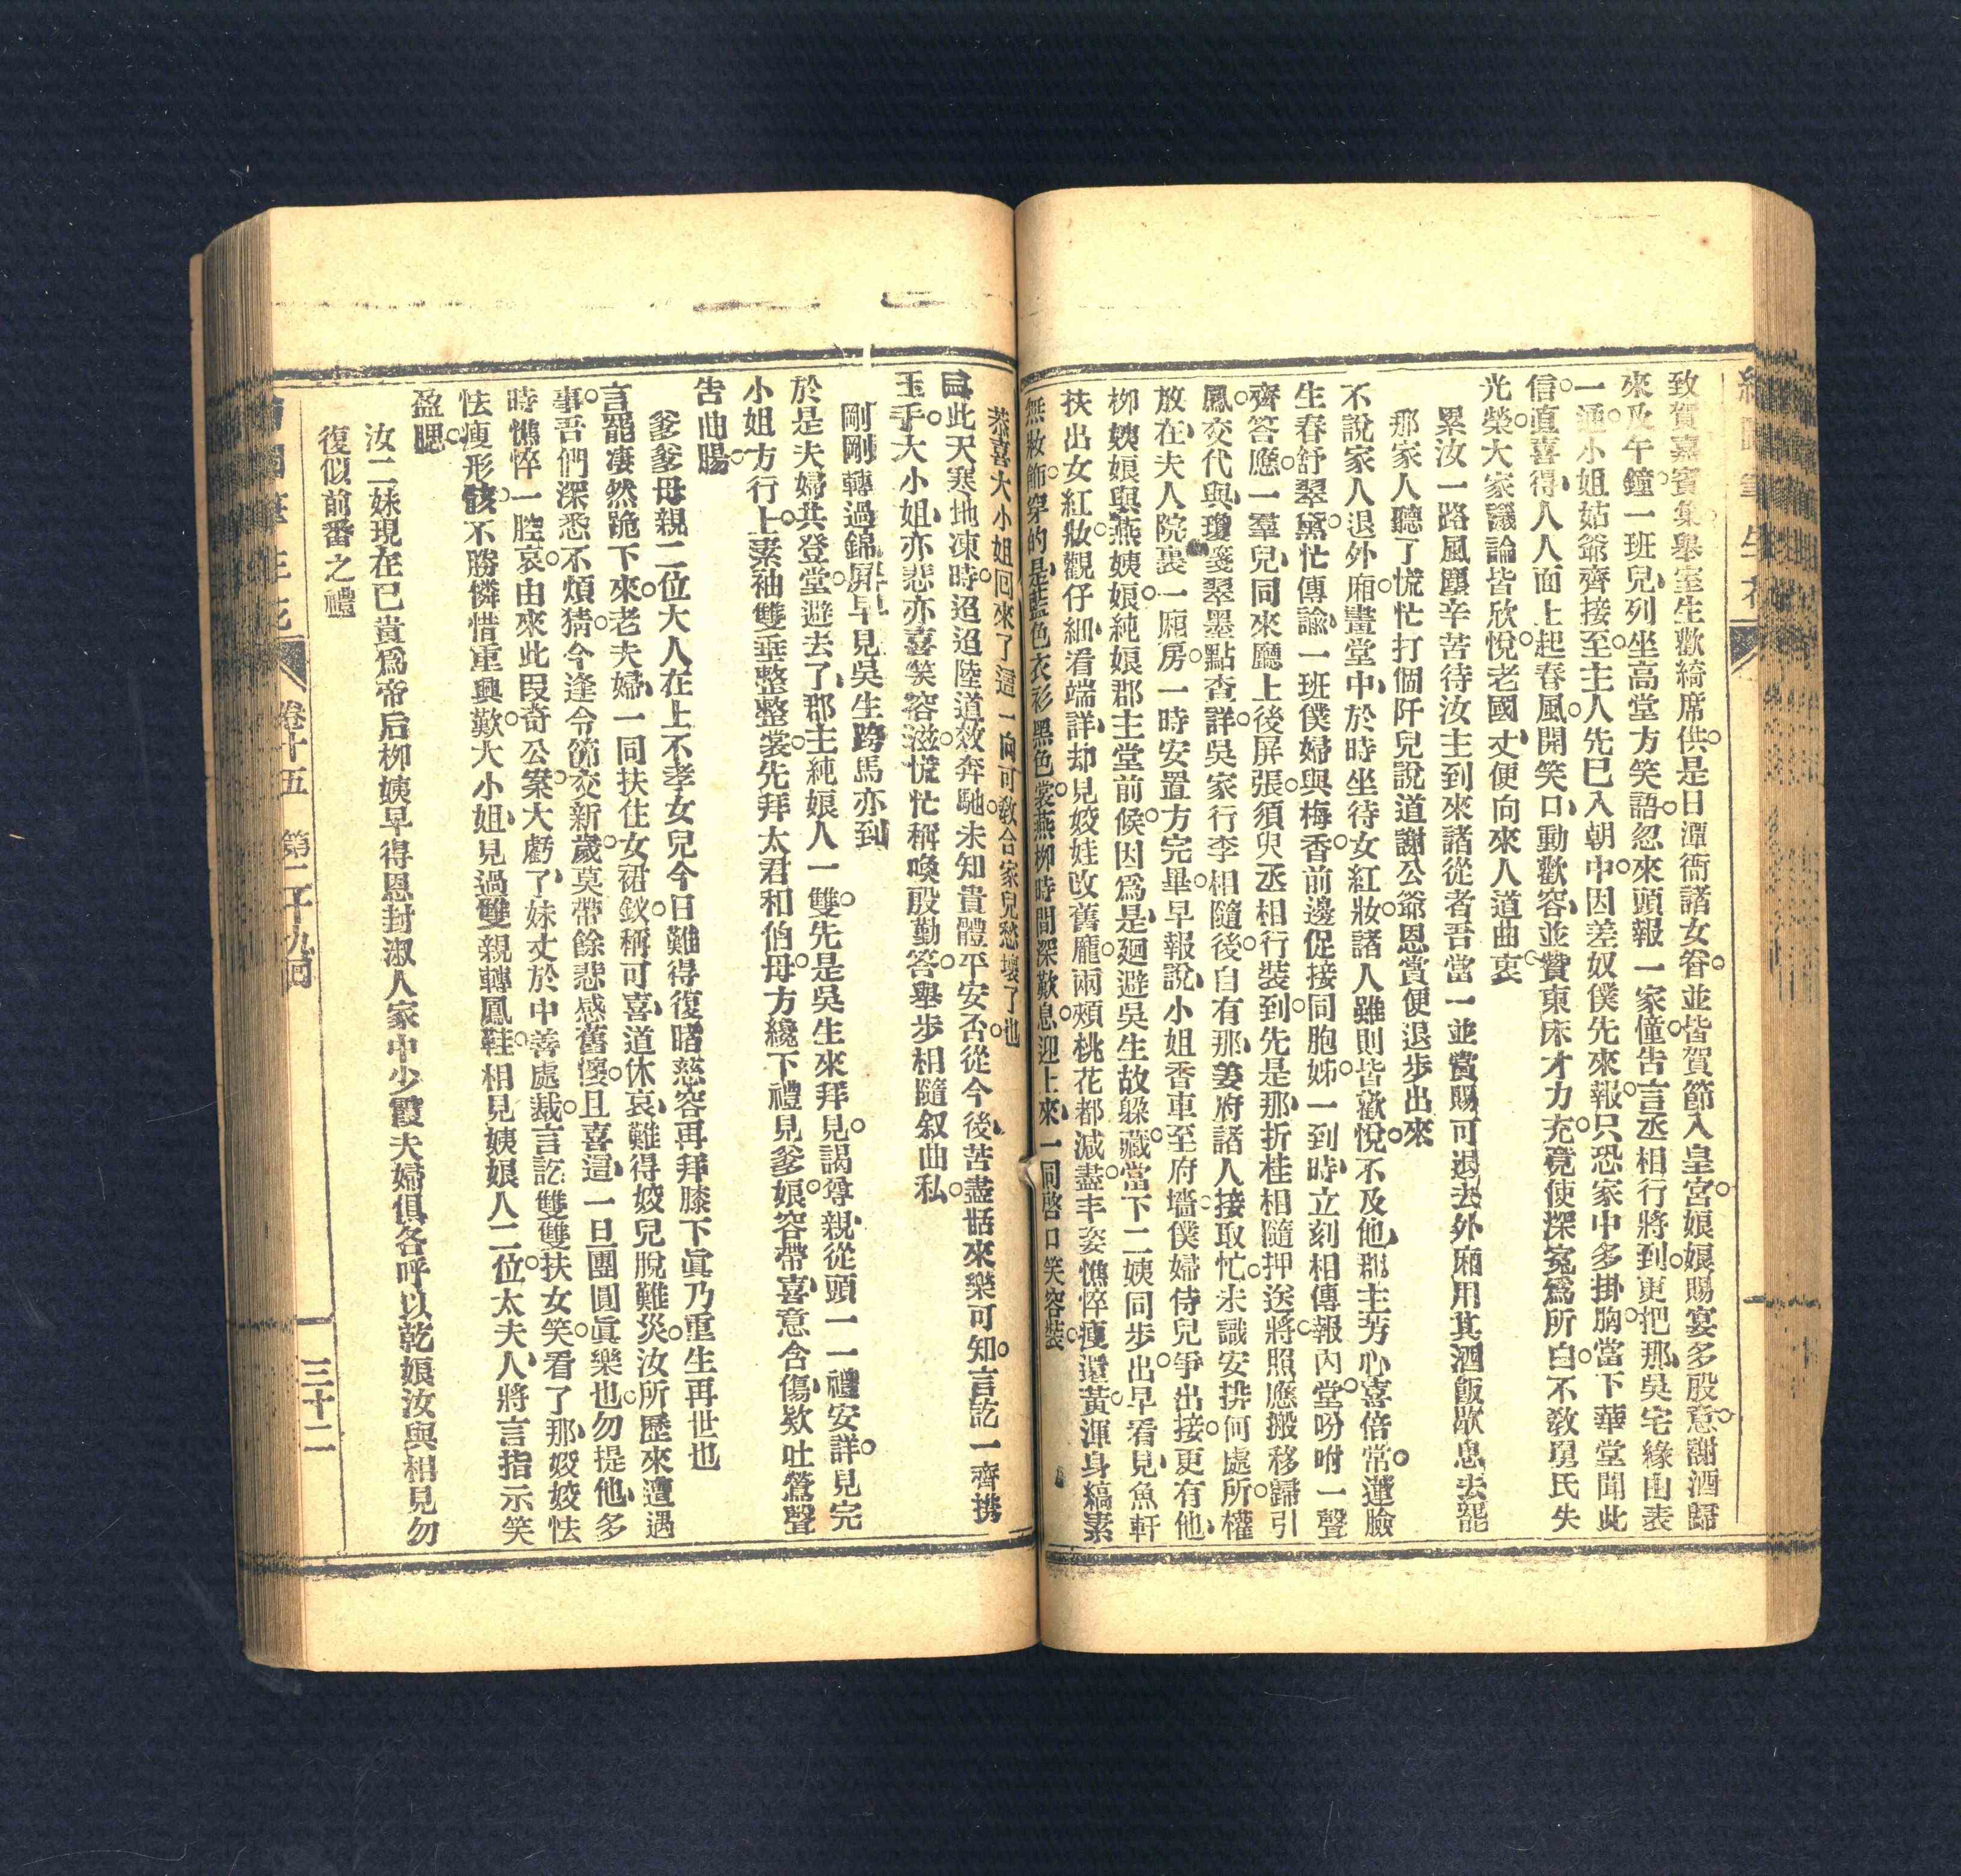 致賀嘉賓集舉室生歡綺席供是日潭衙諸女眷並皆賀節入皇宮娘娘賜宴多殷意謝酒歸
來及午鐘一班兒列坐高堂方笑語忽來頭報一家僮告言丞相行將到更把那吳宅緣由表
一通小姐姑爺齊接至主人先已入朝中因差奴僕先來報只恐家中多掛胸當下華堂聞此
信直喜得人人面上起春風開笑口動歡容並贊東床才力充竟使深冤爲所白不教夷氏失
光榮大家議論皆欣悅老國丈便向來人道曲衷
累汝一路風塵辛苦待汝主到來諸從者吾當一並賞賜可退去外廂用其酒飯歇息去罷
那家人聽了慌忙打個阡兒說道謝公爺恩賞便退步出來
不說家人退外廂畫堂中於時坐待女紅妝諸人雖則皆歡悅不及他郡主芳心喜倍常蓮臉
生春舒翠黛忙傳諭一班僕婦與梅香前邊促接同胞姊一到時立刻相傳報內堂吩咐一聲
齊答應一羣兒同來廳上後屏張須臾丞相行裝到先是那折桂相隨押送將照應搬移歸引
鳳交代與瓊箋翠墨點查詳吳家行李相隨後自有那姜府諸人接取忙未識安排何處所權
放在夫人院裏一廂房一時安置方完畢早報說小姐香車至府墻僕婦侍兒爭出接更有他
柳姨娘與燕姨娘純娘郡主堂前候因爲是廻避吳生故躲藏當下二姨同步出早看見魚軒
扶出女紅妝觀仔細看端詳却見姣娃改舊龐兩頰桃花都減盡丰姿憔悴瘦還黃渾身縞素
無妝飾穿的是藍色衣衫黑色裳燕柳時間深歎息迎上來一同啓口笑容裝
恭喜大小姐回來了這一向可教合家兒愁壞了也
曰此天寒地凍時迢迢陸道效奔馳未知貴體平安否從今後苦盡恬來樂可知言訖一齊携
玉手大小姐亦悲亦喜笑容滋慌忙稱喚殷勤答舉步相隨叙曲私
剛剛轉過錦屏早見吳生跨馬亦到
於是夫婦共登堂避去了郡主純娘人一雙先是吳生來拜見謁尊親從頭一一禮安詳見完
小姐方行上素袖雙垂整整裳先拜太君和伯母方纔下禮見爹娘容帶喜意含傷欸吐鶯聲
告曲腸
爹爹母親二位大人在上不孝女兒今日難得復睹慈容再拜膝下眞乃重生再世也
言罷凄然跪下來老夫婦一同扶住女裙釵稱可喜道休哀難得姣兒脫難災汝所歷來遭遇
事吾們深悉不煩猜今逢令節交新歲莫帶餘悲感舊懷且喜這一旦團圓眞樂也勿提他多
時憔悴一腔哀由來此段奇公案大虧了妹丈於中善處裁言訖雙雙扶女笑看了那姣姣怯
怯瘦形骸不勝憐惜重興歎大小姐見過雙親轉鳳鞋相見姨娘人二位太夫人將言指示笑
盈腮
汝二妹現在已貴爲帝后柳姨早得恩封淑人家中少霞夫婦俱各呼以乾娘汝與相見勿
復似前番之禮
卷十五 第二十九回
三十二